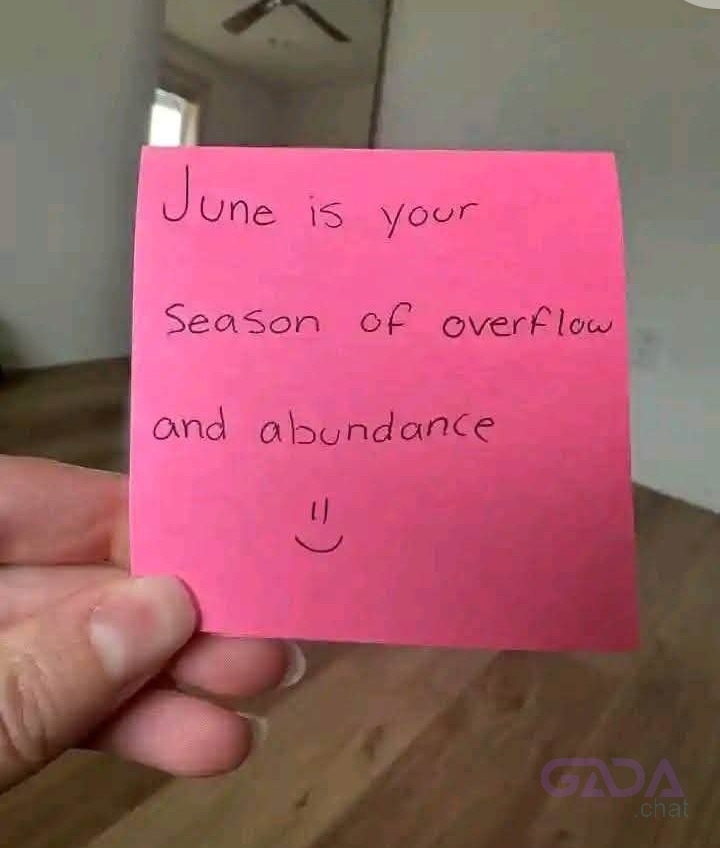 June is your
season of overflow
and abundance
GADA
.chat